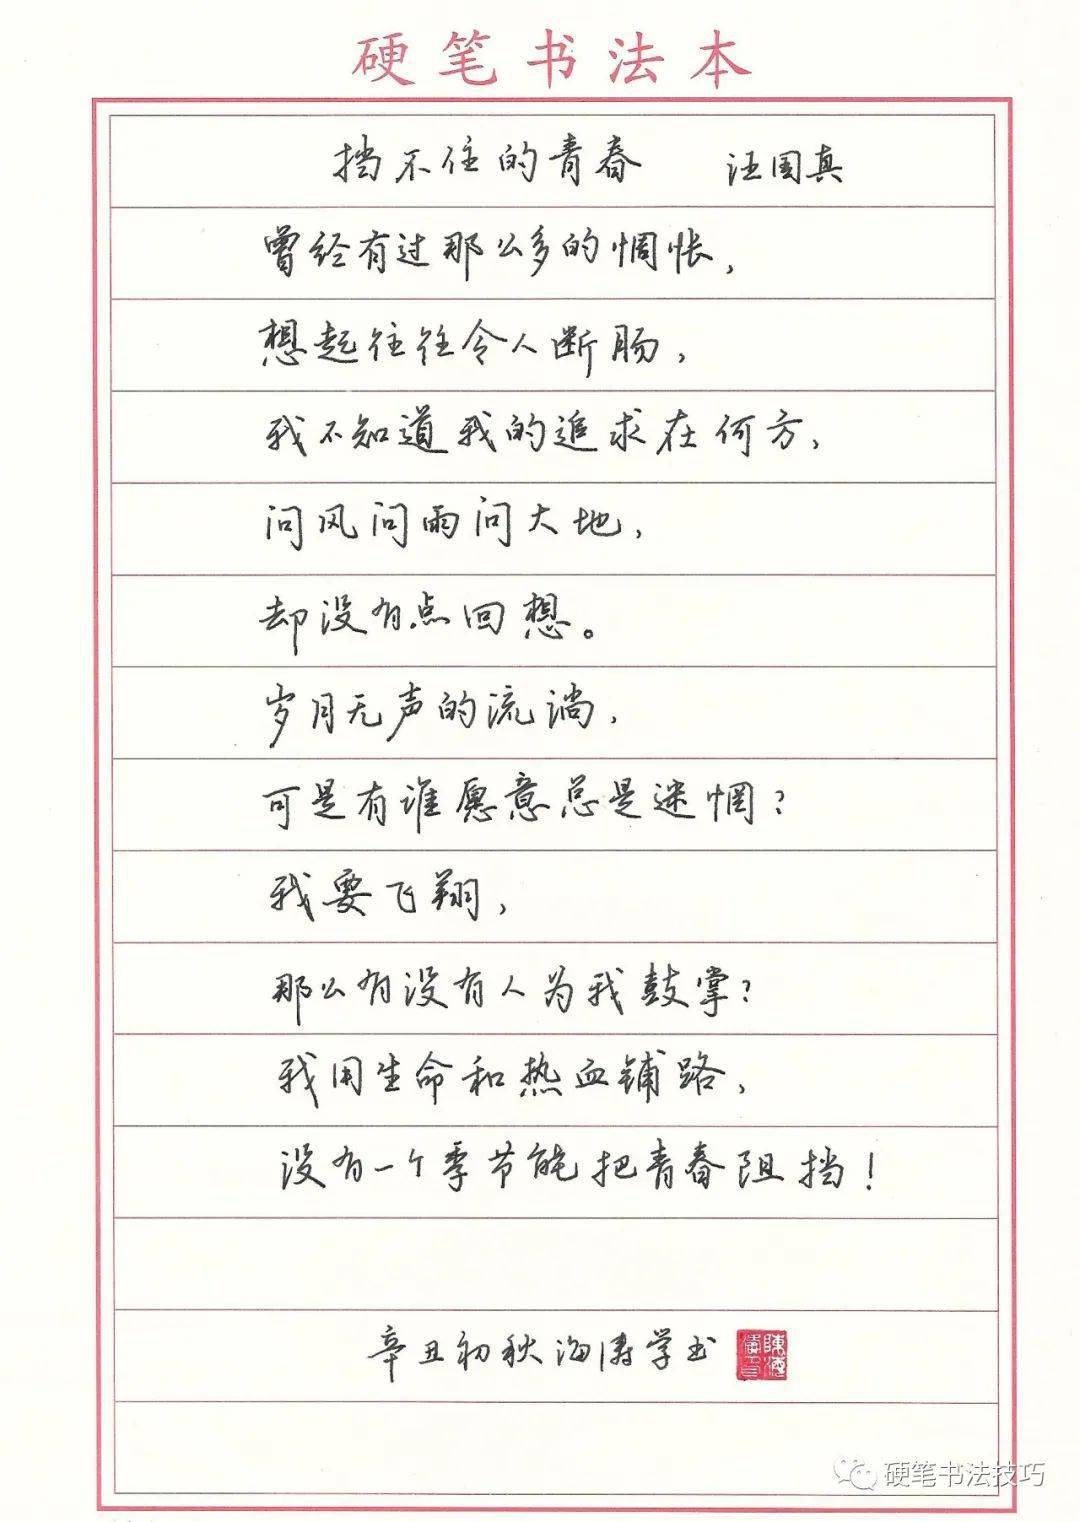 硬笔书法本
挡不住的青春 汪国真
曾经有过那么多的惆怅,
想起往往令人断肠,
我不知道我的追求在何方,
问风问雨问大地,
却没有点回想。
岁月无声的流淌,
可是有谁愿意总是迷惘?
我要飞翔,
那么有没有人为我鼓掌?
我用生命和热血铺路,
没有一个季节能把青春阻挡!
辛丑初秋海涛学书
硬笔书法技巧